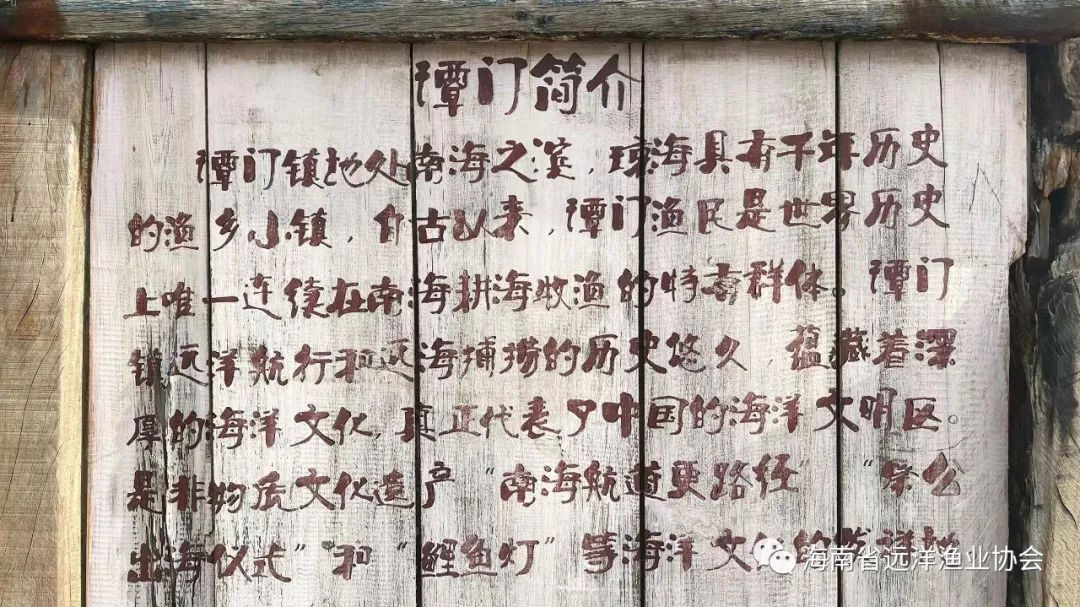 潭门简介
潭门镇地处南海之滨，琼海具有千年历史
的渔乡小镇，自古以来，潭门渔民是世界历史
上唯一连续在南海耕海牧渔的特有群体。潭门
镇远洋航行和远海捕捞的历史悠久，蕴藏着深
厚的海洋文化，真正代表了中国的海洋文明区。
是非物质文化遗产“南海航道更路经”“祭公
出海仪式”和“鲤鱼灯”等海洋文化的发祥地
海南省远洋渔业协会